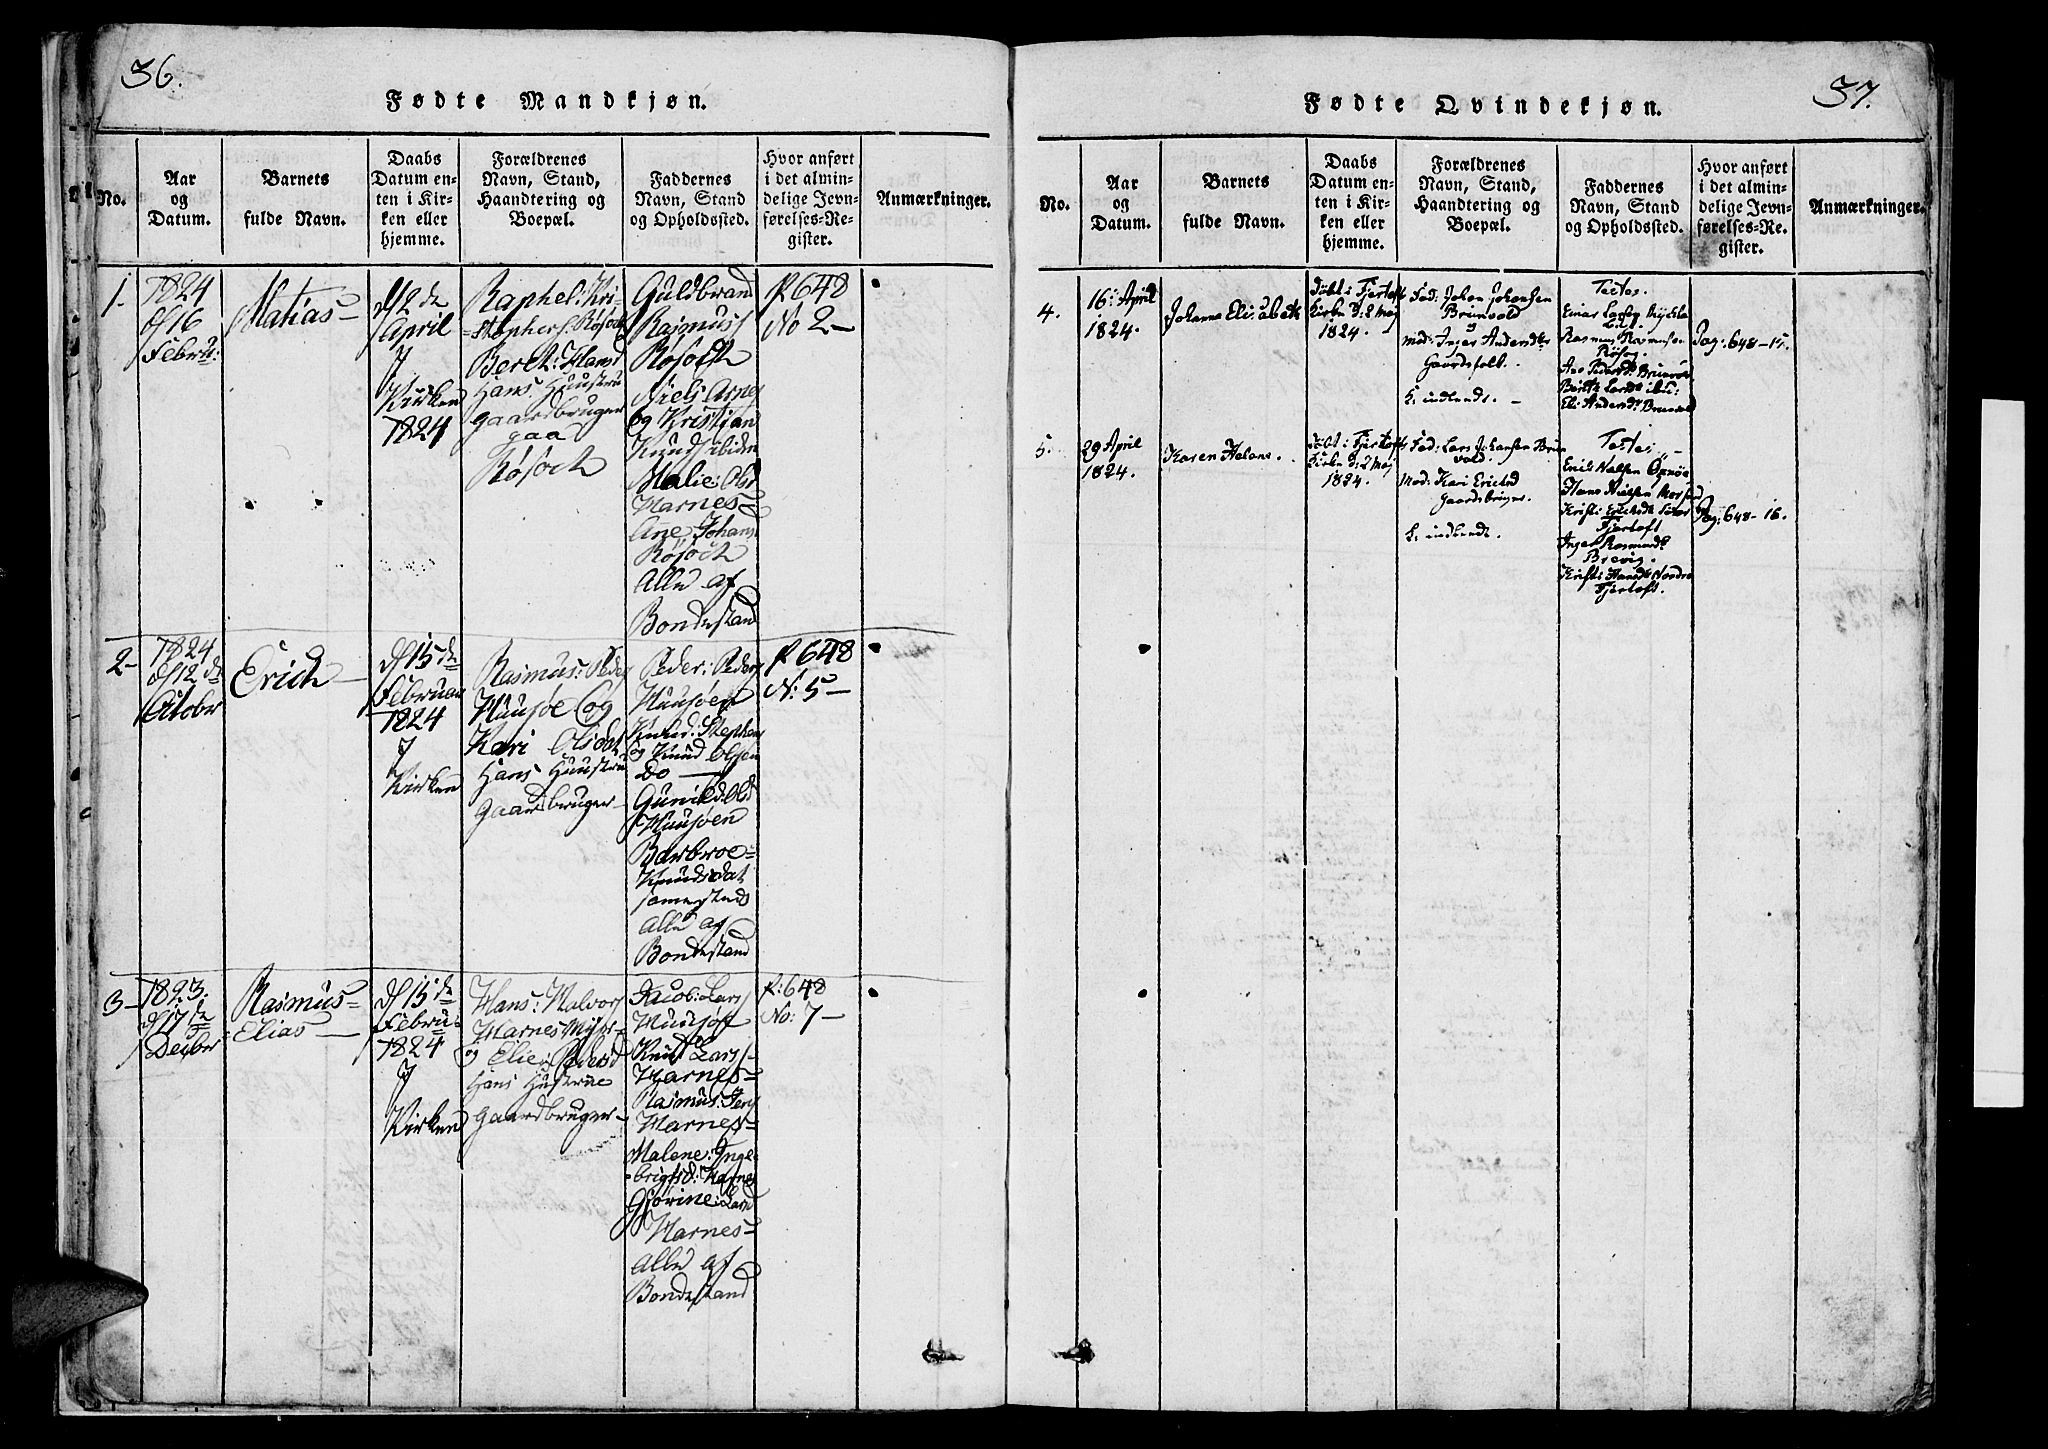 36.
Fødte Mandkjøn.
No.
Aar
og
Datum.
Barnets
fulde Navn.
Daabs
Datum en-
ten i Kir-
ken eller
hjemme.
Forældrenes
Navn, Stand,
Haandtering og
Boepæl.
Faddernes
Navn, Stand
og Opholdssted.
Hvor anført
i det almin-
delige Jevn-
førelses-Re-
gister.
Anmærkninger.
1.
1824
d 16
Febru:
Matias
d 2 de
April
J
Kirken
1824
Raphel: Kri-
stophers: Røsoch
Beret: Hansd
Hans Huustru
gaardbruger
paa
Røsoch
Guldbrand
Rasmus
Røsoch
Niels Arne
og Kristian
Knuds ibidem
Malie: Olsd
Harnes
Ane Johans
Røsoch
Alle af
Bondestand
P 648
No 2
2
1824
d 12 de
Octobr
Erich
d 15 de
Februar
1824
J
Kirken
Rasmus: Peder
Huusøe Og
Kari Olsdat
Hans Huustru
Gaardbruger
Peder: Peders
Huusøen
Knud: Stephens
og Knud Olsen
Do
Gunild: Olsd
Huusøen
Barbroe
Knudsdat
samesteds
Alle af
Bondestand
P 648
N: 5
3
1823.
d 17 de
Decbr
Rasmus
Elias
d 15 de
Febru:
1824
J
Kirken
Hans: Halvors
Harnes Myhr
og Elie: Pedersd
Hans Hustrue
Gaardbruger
Jacob: Lars
Huusøe
Knut Lars
Harnes
Rasmus: Jens
Harnes
Malene: Inge-
brigtsd: Harnes
Gjørine: Larsd
Harnes
Alle af
Bondestand
P: 648
No: 7
37.
Fødte Qvindekjøn.
No.
Aar
og
Datum.
Barnets
fulde Navn.
Daabs
Datum en-
ten i Kir-
ken eller
hjemme.
Forældrenes
Navn, Stand,
Haandtering og
Boepæl.
Faddernes
Navn, Stand
og Opholdssted.
Hvor anført
i det almin-
delige Jevn-
førelses-Re-
gister.
Anmærkninger.
4.
16: April
1824.
Johanna Elisabeth
Døbt i Fjertoft
Kirke D: 2 Maj
1824.
Fad: Johan Johansen
Brunvold
Mod: Inger Andersdtr
Gaardsfolk.
K: indledt.
Testes.
Einar
Rasmus Rasmusen
Røsog.
Ane Pedersdtr Brunvold
Berte Larsdtr ibid:
Eli Andersdtr Brunvold
Pag: 648-15.
5.
29 April
1824.
Karen Helene.
Døbt i Fjertoft
Kirke D: 2 Maj
1824.
Fad: Lars Johansen Brun
vold.
Mod: Kari Erichsd
Gaardsbruger.
K: indledt.
Testes:
Hans Nielsen
Fjertoft
Inger Rasmusdtr
Brevig.
Kristi Hansdtr Nordre
Fjertoft.
Pag: 648-16.